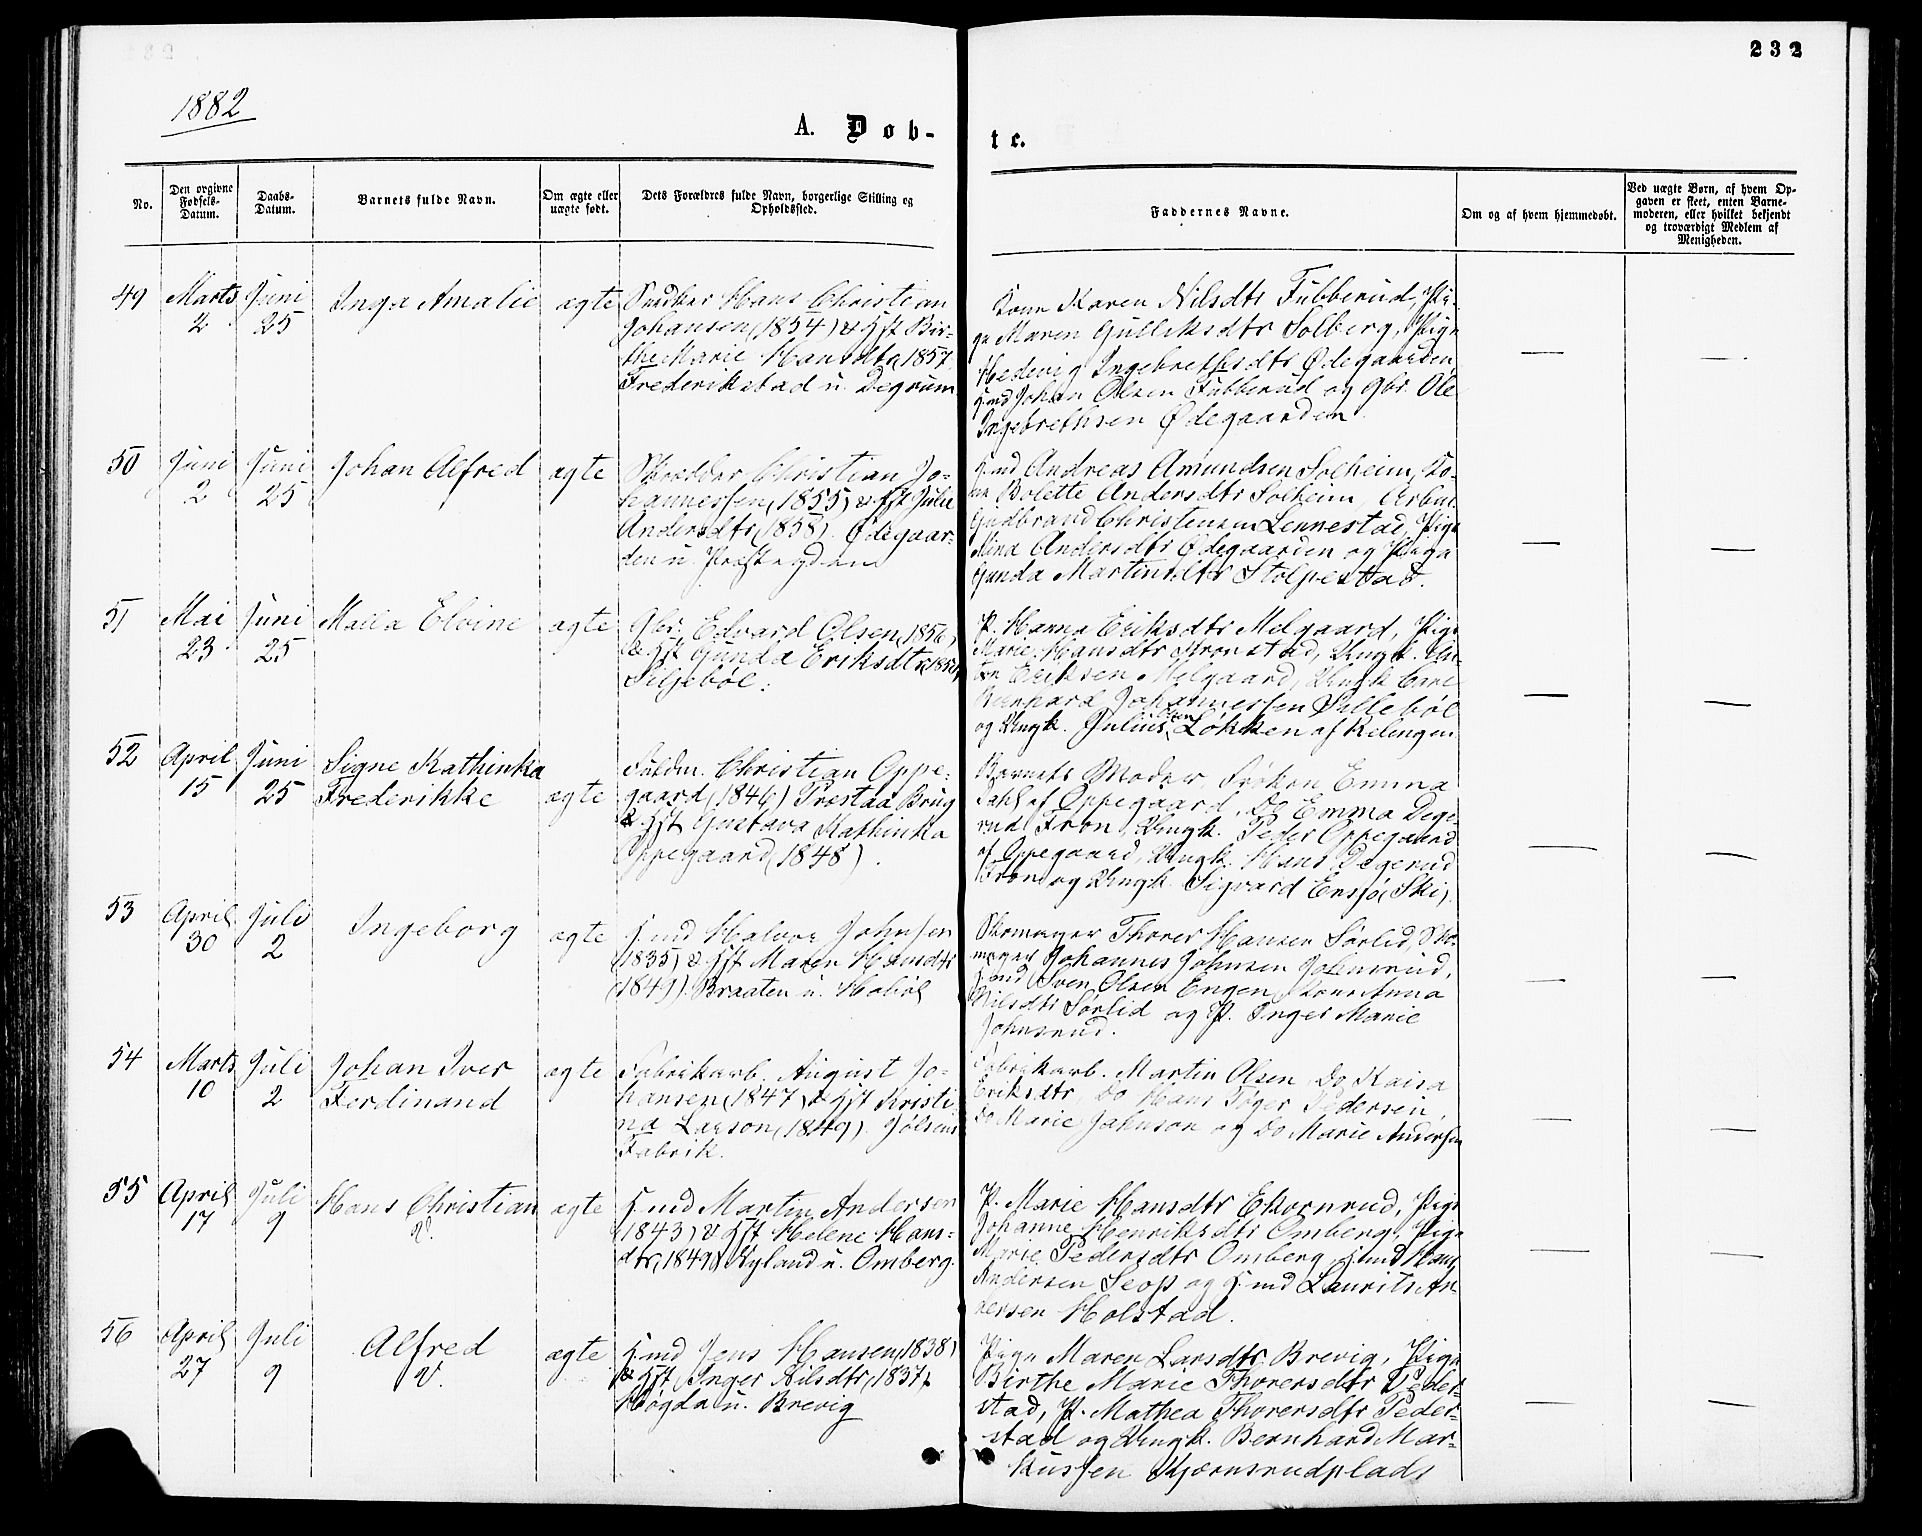 232
1882
A. Døb-
te.
No.
Den opgivne Fødsels-Datum.
Daabs-Datum.
Barnets fulde Navn.
Om ægte eller uægte født.
Dets Forældres fulde Navn, borgerlige Stilling og Opholdssted.
Faddernes Navne.
Om og af hvem hjemmedøbt.
Ved uægte Børn, af hvem Op-
gaven er skeet, enten Barne-
moderen, eller hvilket bekjendt
og troværdigt Medlem af
Menigheden.
49 Marts 2 Juni 25 Inga Amalie ægte
Snedker Hans Christian
Johansen (1854) & Hst Bir-
the Marie Hansdtr (1857
Frederikstad u. Degrum
Kone Karen Nilsdtr Fubberud, Pi-
ge Maren Gulliksdtr Solberg, Pige
Hedevig Ingebrethsdtr Ødegaarden
Hmd Johan Olsen Fubberud og Gbr. Ole
Ingebrethsen Ødegaarden.
50 Juni 2 Juni 25 Johan Alfred ægte
Skrædder Christian Jo-
hannessen (1855) & Hst Julie
Andersdtr (1858). Ødegaar-
den u. Præstegden
Hmd Andreas Amundsen Solheim, Ko-
ne Bolette Andersdtr Solheim, Arbm
Gudbrand Christensen Lennestad, Pige
Mina Andersdtr Ødegaarden og Pige
Gunda Martinsdtr Stolpestad.
51 Mai 23 Juni 25 Elvine ægte
Gbr. Edvard Olsen (1856)
& Hst Gunda Eriksdtr
Siljebøl.
P. Hanna Eriksdtr Melgaard, Pige
Marie Hansdtr Kronstad, Ungk.
Eriksen Melgaard, Ungk Carl
Bernhard Johannessen Sillebøl
og Ungk. Julius Olsen Løkken af Relingen
52 April 15 Juni 25 Signe Kathinka
Frederikke ægte
Fuldm. Christian Oppe-
gaard, (1846) Træstaa Brug
& Hst Gustava Kathinka
Oppegaard (1848).
Barnets Moder, Frøken Emma
Dahl af Oppegaard, Do Emma Dege-
rud Fron, Ungk. Peder Oppegaard
af Oppegaard, Ungk. Hans Degerud
Fron og Ungk. Sigvard Ensjø (Ski).
53 April 30 Juli 2 Ingeborg ægte
Hmd Halvor Johnsen
(1835) & Hst Maren Hansdtr
(1849). Braaten u. Hobøl
Skomager Thorer Hansen Sørlid, Sko-
mager Johannes Johnsen Johnsrud,
Hmd Sven Olsen Engen, Kone Anna
Nilsdtr Sørlid og P. Inger Marie
Johnsrud.
54 Marts 10 Juli 2 Johan Iver
Ferdinand ægte
Fabrikarb. August Jo-
hansen (1847) & Hst Kristi-
na Larson (1849). Jølsens
Fabrik.
Fabrikarb. Martin Olsen, Do Kaisa
Eriksdtr, Do Hans Tøger Pedersen,
Do Marie Johnson og Do Marie Andersen
55 April 17 Juli 9 Hans Christian
V. ægte
Hmd Martin Andersen
(1843) & Hst Helene Hans-
dtr (1849) Nyland u. Omberg.
P. Marie Hansdtr Ekornrud, Pige
Johanne Henriksdtr Omberg, Pige
Marie Pedersdtr Omberg, Hmd Hans
Andersen Seop og Hmd Laurits An-
dersen Holstad.
56 April 27 Juli 9 Alfred
V. ægte
Hmd Jens Hansen (1838)
& Hst Inger Nilsdtr (1837).
Høgda u. Brevig
Pige Maren Larsdtr Brevig, Pige
Birthe Marie Thorersdtr Peder-
stad, P. Mathea Thorersdtr Peder-
stad og Ungk. Bernhard Mar-
kussen Kjærnsrudplads